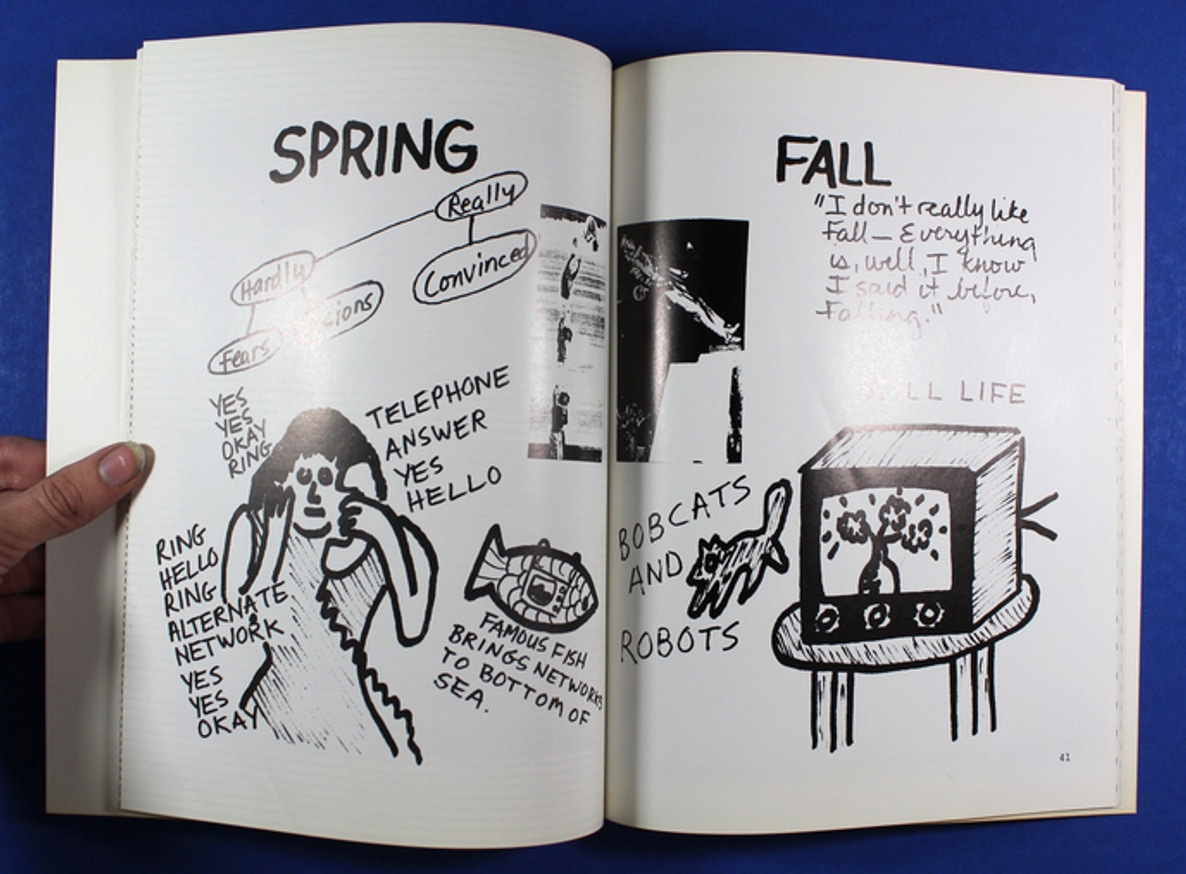 SPRING
Really
Convinced
Hardly
Fears
YES
YES
OKAY
RING
TELEPHONE
ANSWER
YES
HELLO
RING
HELLO
RING
ALTERNATE
NETWORK
YES
YES
OKAY
FAMOUS FISH
BRINGS NETWORKS
TO BOTTOM OF
SEA.
FALL
"I don't really like
Fall— Everything
is, well, I know
I said it before,
Falling."
STILL LIFE
BOBCATS
AND
ROBOTS
41